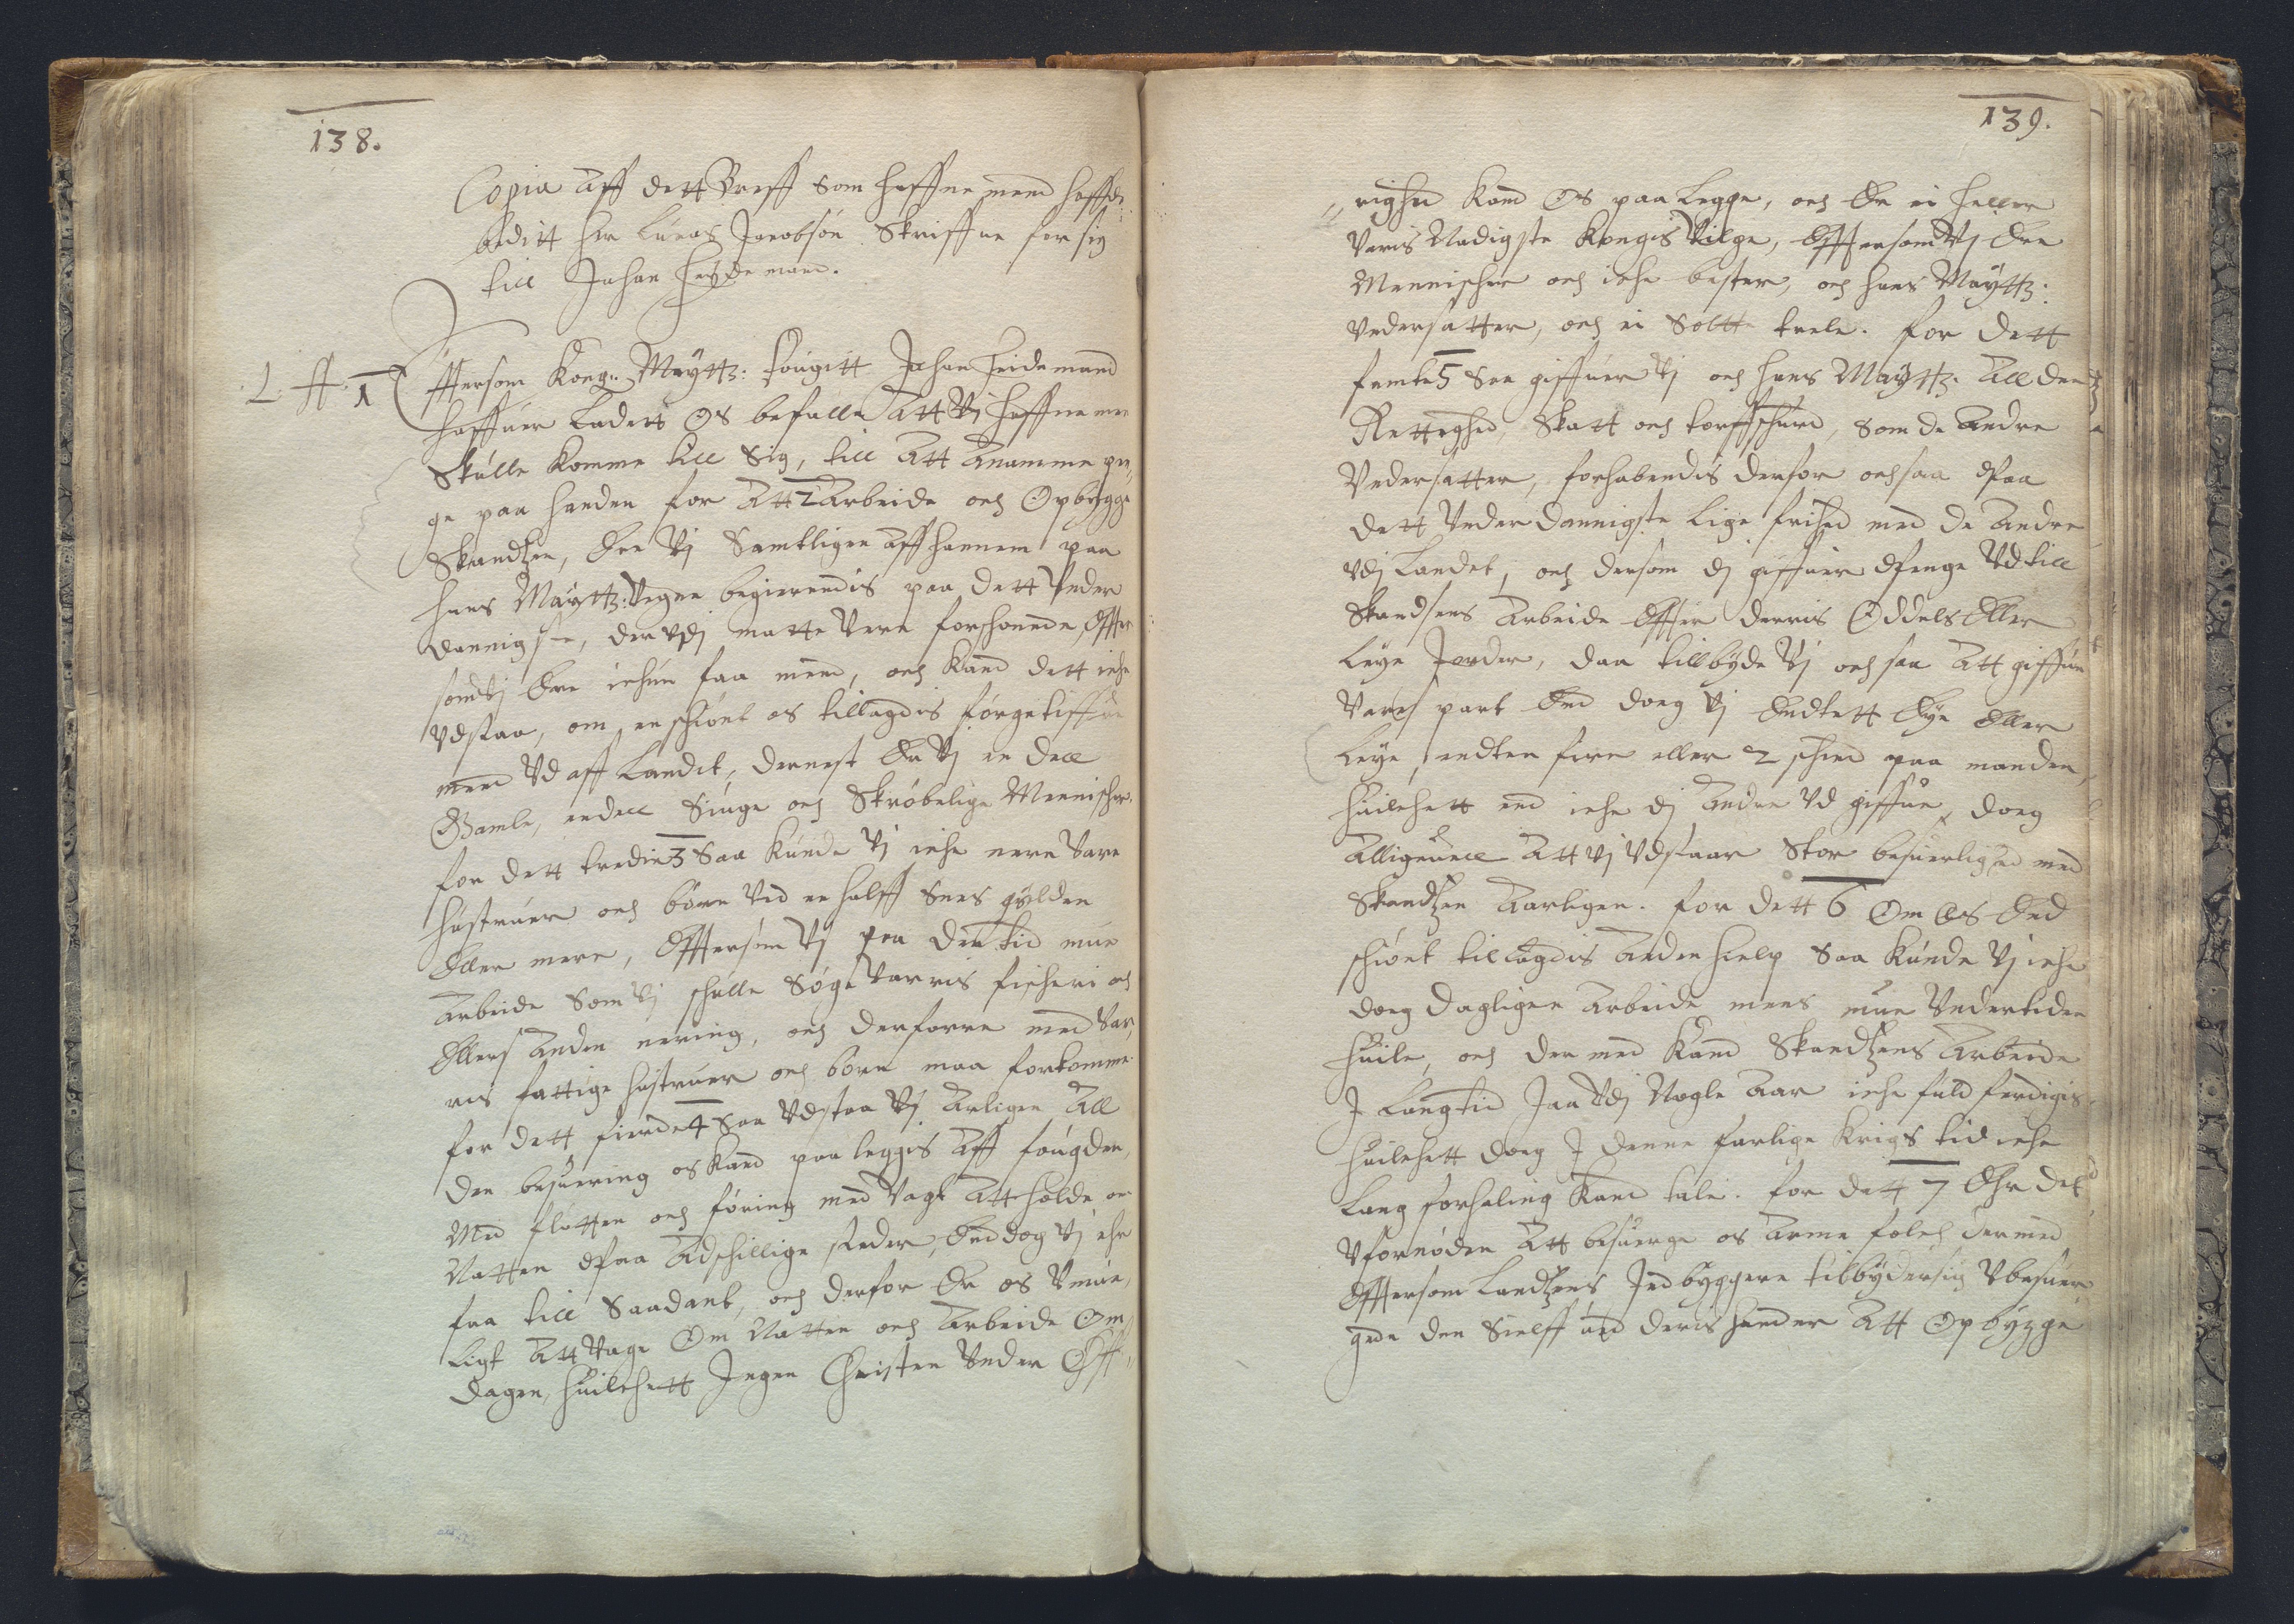 138.
Copia Aff dett Breff som haffne mend haffde
beditt her Lucas Jacobsøn Skriffue for sig
till Johan Heydemand.
L. A. 1 Effttersom Kong: Maytts: fougitt Johan Heidemand
haffuer Ladett Os befalle Att Vj haffnemen
Skulle komme till Sig, till Att Anamme pen¬
ge paa handen for Att Arbeide och Opbygge
Skandtzen, Ere Vj Samtligen Aff hannem paa
hans Maytts: Vegne begierendis paa dett Vnder
dannigste, der Vdj motte Vere forschonnede, Effter
som Vj Ere ichun faa mend, och kand dett iche
Vdstaa, om en schiønt os tillagdis førgetiffue
mend Vd aff Landit, dernest Er Vj en deel
Gamle, endeel Siuge och Skrøbelige Mennischer.
for dett tredie 3 Saa kunde Vj iche nere Vare
hustruer och børn Ved en halff Snes gylden
Eller mere, Effttersom Vj paa den tid mue
Arbeide Som Vj schulle Søge Varris fischeri och
Ellers Anden nering, och derforre med Var¬
ris fattige hustruer och børn maa forkomme.
for dett fierde 4 Saa Vdstaa Vj Arligen All
den besuering os kand paa leggis Aff fougden,
Med flotten och føring med Vagt Att holde om
Natten Paa Adschillige steder, End dog Vj ehr
faa till Saadant, och derfor Er os Vmue¬
ligt Att Vage Om Natten och Arbeide Om
dagen, huilchett Ingen Christen Vnder Øff¬
139.
righed kand Os paa Legge, och Er ei heller
Voris Nadigste Kongis Vilge, Effttersom Vj Ere
Mennischer och iche bester, och hans Maytts:
Vndersatter, och ei Solte trele. for dett
femte 5 Saa giffuer Vj och hans Maytts. All den
Rettighed, Skatt och torffschurd, Som de Andre
Vndersatter, forhabendis derfor och saa Paa
dett Vnder dannigste Lige frihed med de Andre
Vdj Landet, och dersom dj giffuer Penge Vd till
Skandsens Arbeide Effter derris Oddels Eller
Leye Jorder, daa tilbyde Vj och saa Att giffue
Vares part End doeg Vj Endtett Eye Eller
Leye, endten fire eller 2 schind paa manden,
huilchett end iche dj Andre Vd giffue, doeg
Alligeuell Att Vj Vdstaar Stor besuerlighed med
Skandtzen Aarligen. for dett 6 Om Os End
schiønt tillagdis Anden hielp Saa kunde Vj iche
doeg dagligen Arbeide mens mue Vndertiden
huile, och der med kand Skandtzens Arbeide
J Lang tid Jaa Vdj Nogle Aar iche fuld ferdigis,
huilchett doeg J denne farlige Krigs tid iche
Lang forhaling kand tale. for dett 7 Ehr det
Vfornøden Att besuerge os Arme folch dermed
Effttersom Landtzens Indbyggere tilbyder sig Vbesuer¬
gede den Sielff ved deris hender Att Opbygge